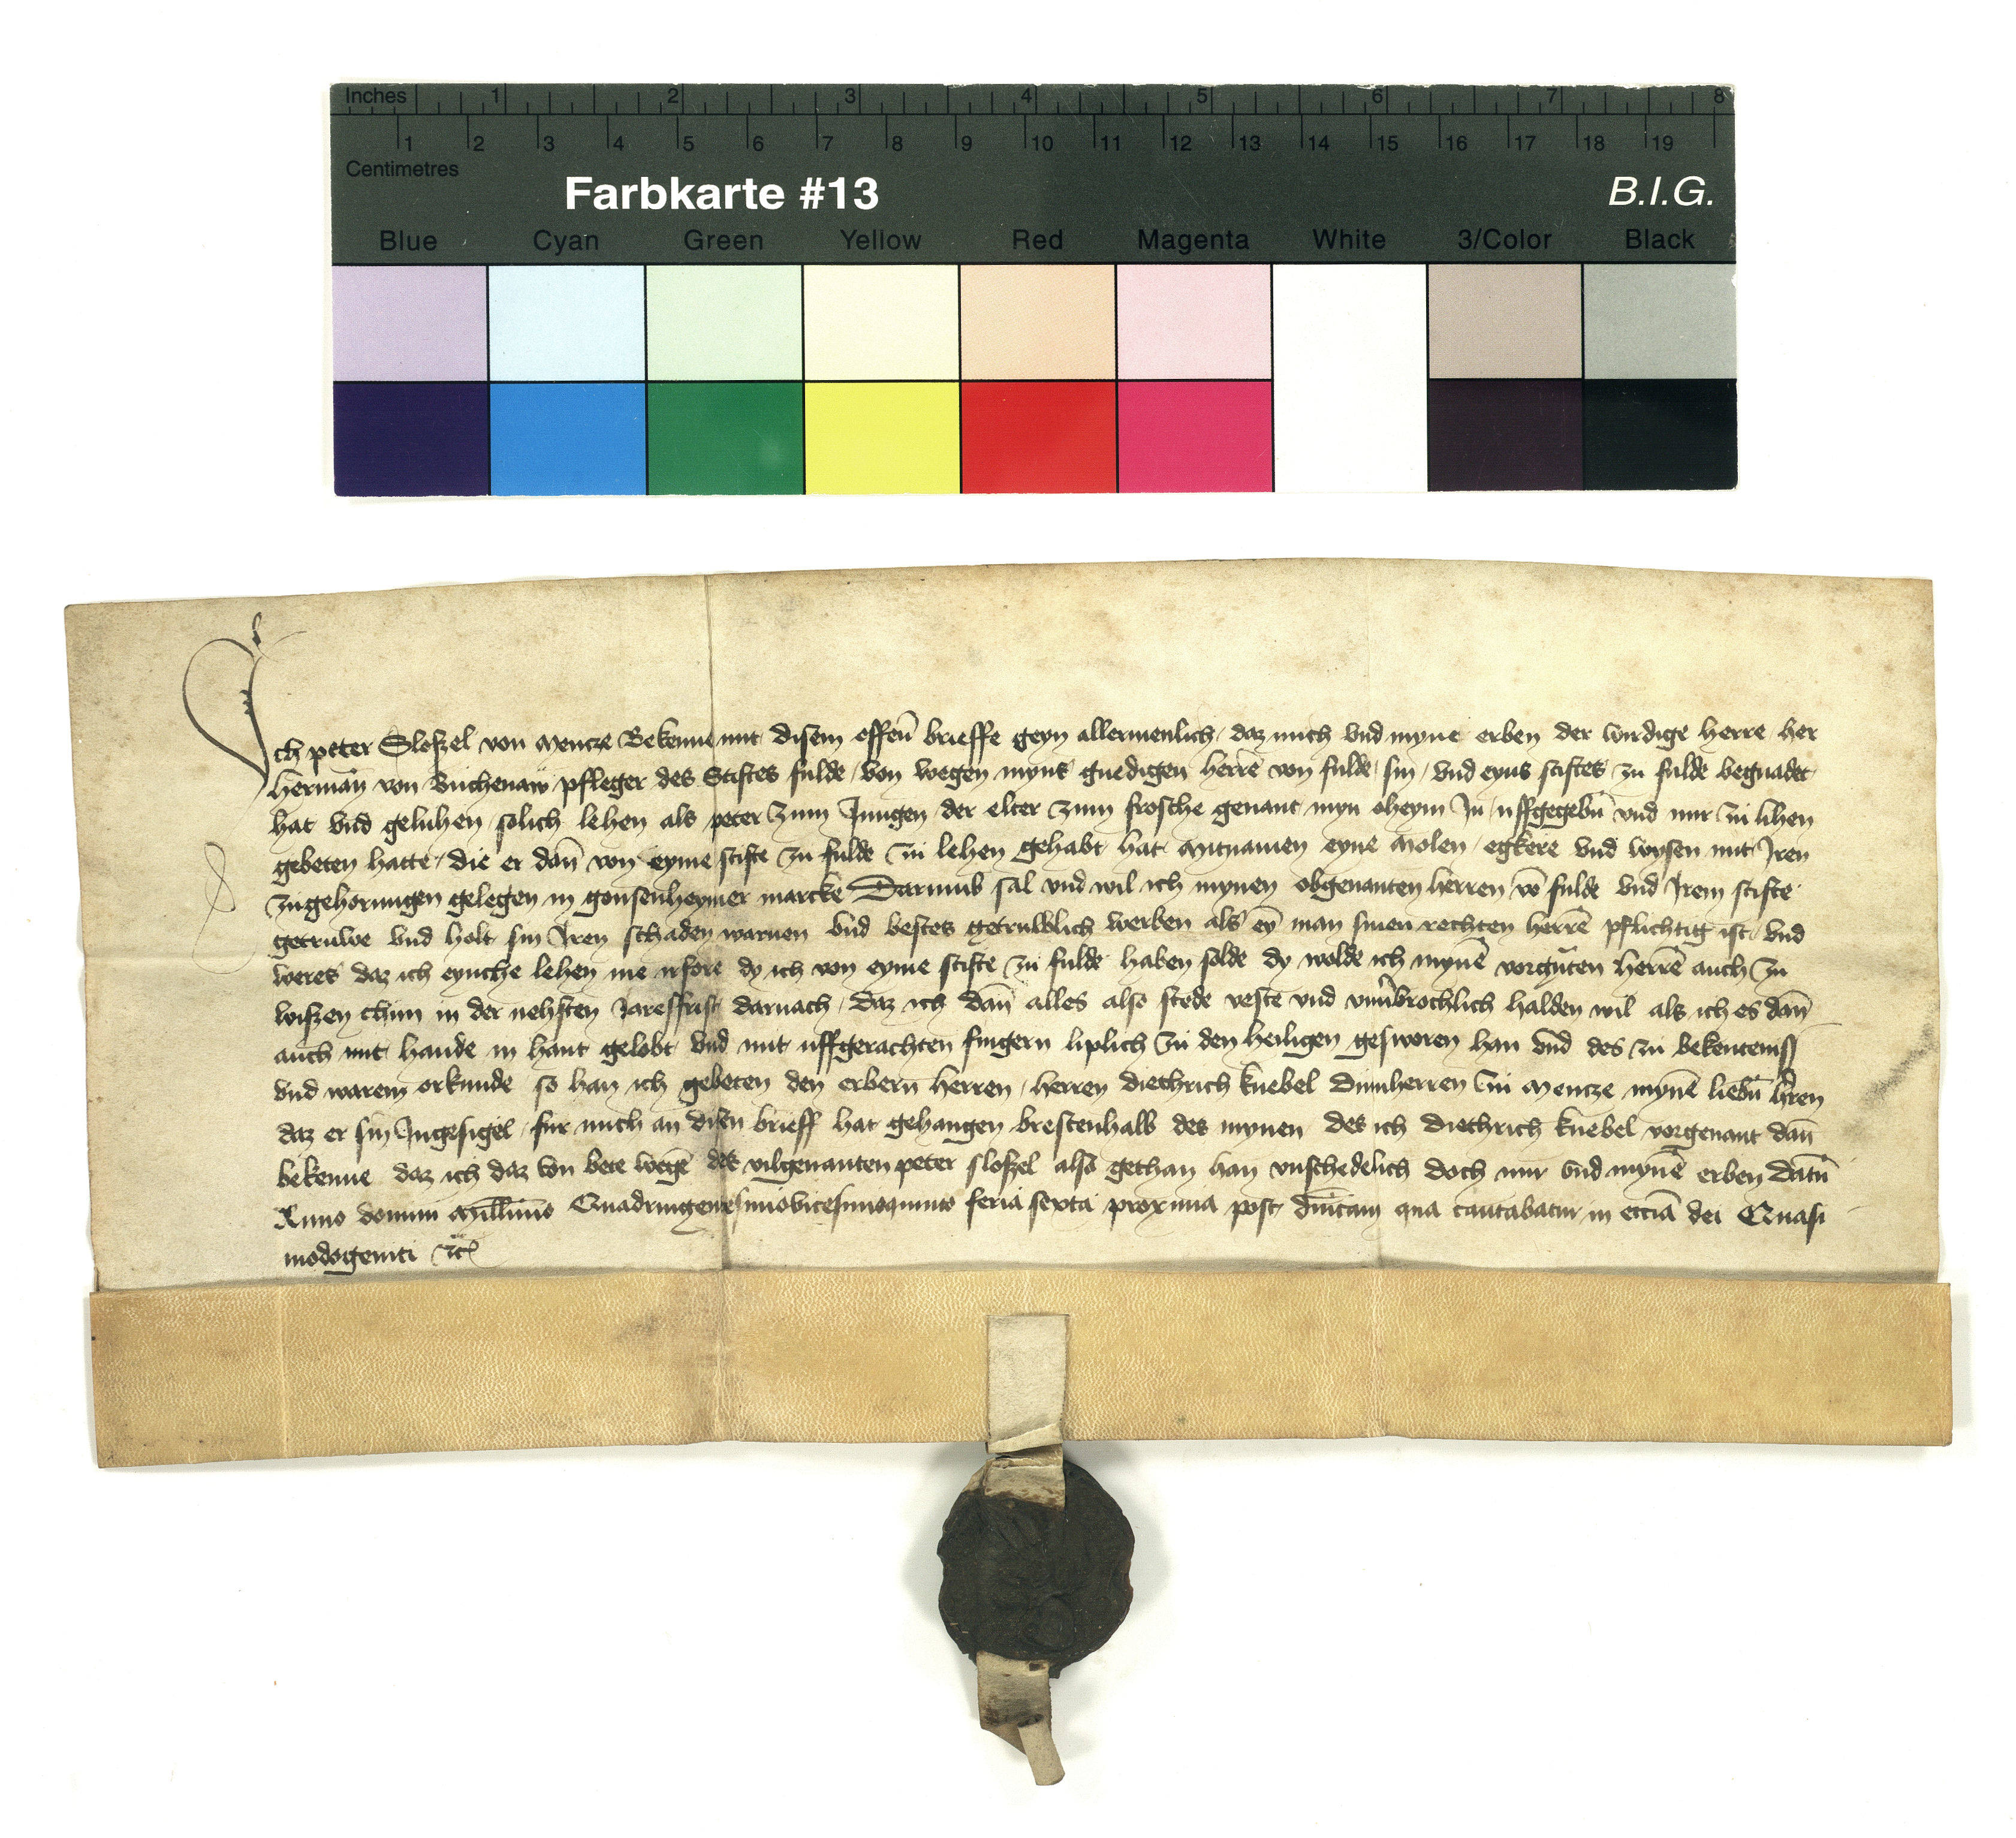 Inches 1 2 3 4 5 6 7 8
1 2 3 4 5 6 7 8 9 10 11 12 13 14 15 16 17 18 19
Centimetres
Farbkarte #13 B.I.G.
Blue Cyan Green Yellow Red Magenta White 3/Color Black
Ich peter Sloszel von Mencze Bekenne mit disem offen̄ brieffe geyn allermenlich daz mich vnd myne erben der wirdige herre her
Herman̄ von Buchenaw pfleger des Stiftes fulde von wegen myns gnedigen herrē von fulde sin vnd eyns stiftes zu fulde begnadet
hat vnd geluhen solich lehen als peter zum Jungen der elter zum frosche genant myn oheym In uffgegebn̄ vnd mir zu lihen
gebeten hatte die er dan̄ von eyme stifte zu fulde zu lehen gehabt hat Mitnamen eyne Molen egkere vnd wysen mit Iren
zugehorungen gelegen in gonsenheymer marcke Darumb sal vnd wil ich mynen obgenanten herren vō fulde vnd Irem stifte
getruwe vnd holt sin Iren schaden warnen vnd bestes getruwlich werben als eȳ man sinen rechten herrē pflichtig ist vnd
weres daz ich eynche lehen me irfore dy ich von eyme stifte zu fulde haben solde dy wolde ich mynē vorgn̄ten herrē auch zu
wiszen thun in der nehsten Jaresfrist darnach Daz ich dan̄ alles also stede veste vnd vnūbrochlich halden wil als ich es dan̄
auch mit hande in hant gelobt vnd mit uffgerachten fingern liplich zu den heiligen gesworen han vnd des zu bekenteniß
vnd warem orkunde so han ich gebeten den erbern herren herren diethrich knebel Dumherren zu Mencze mynē liebn̄ h̄ren
daz er sin Ingesigel fur mich an disen brieff hat gehangen brestenhalb des mynen des ich diethrich knebel vorgenant dan̄
bekenne daz ich daz von bete wegē des vilgenanten peter sloszel also gethan han vnschedelich doch mir vnd mynē erben Datū
Anno domini Millīmo Quadringentesimovicesimoquinto feria sexta proxima post dn̄icam qua cantabatur in eccīa dei Quasi
modogeniti ⁊c̄